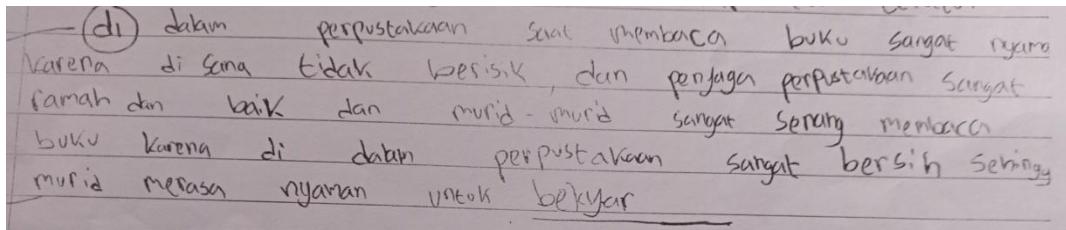 - di dalam perpustakaan saat membaca buku sangat nyama
karena di sana tidak berisik, dan penjaga perpustakaan sangat
ramah dan baik dan murid-murid sangat senang membaca
buku karena di dalam perpustakaan sangat bersih sehingg
murid merasa nyaman untuk